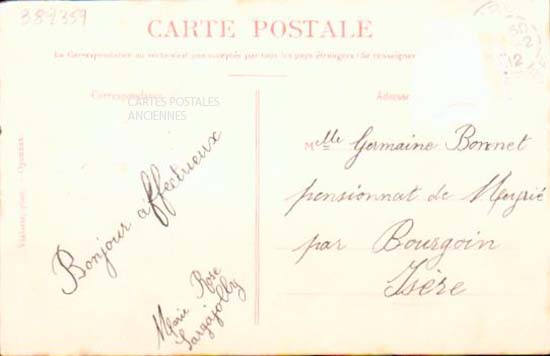 389359
CARTE POSTALE
La Correspondance au recto n'est pas acceptée par tous les pays étrangers (Se renseigner
Correspondance
Adresse
CARTES POSTALES
ANCIENNES
Bonjour affectueux
Marie Rose
M^lle Germaine Bonnet
pensionnat de Meyrié
par Bourgoin
Isère